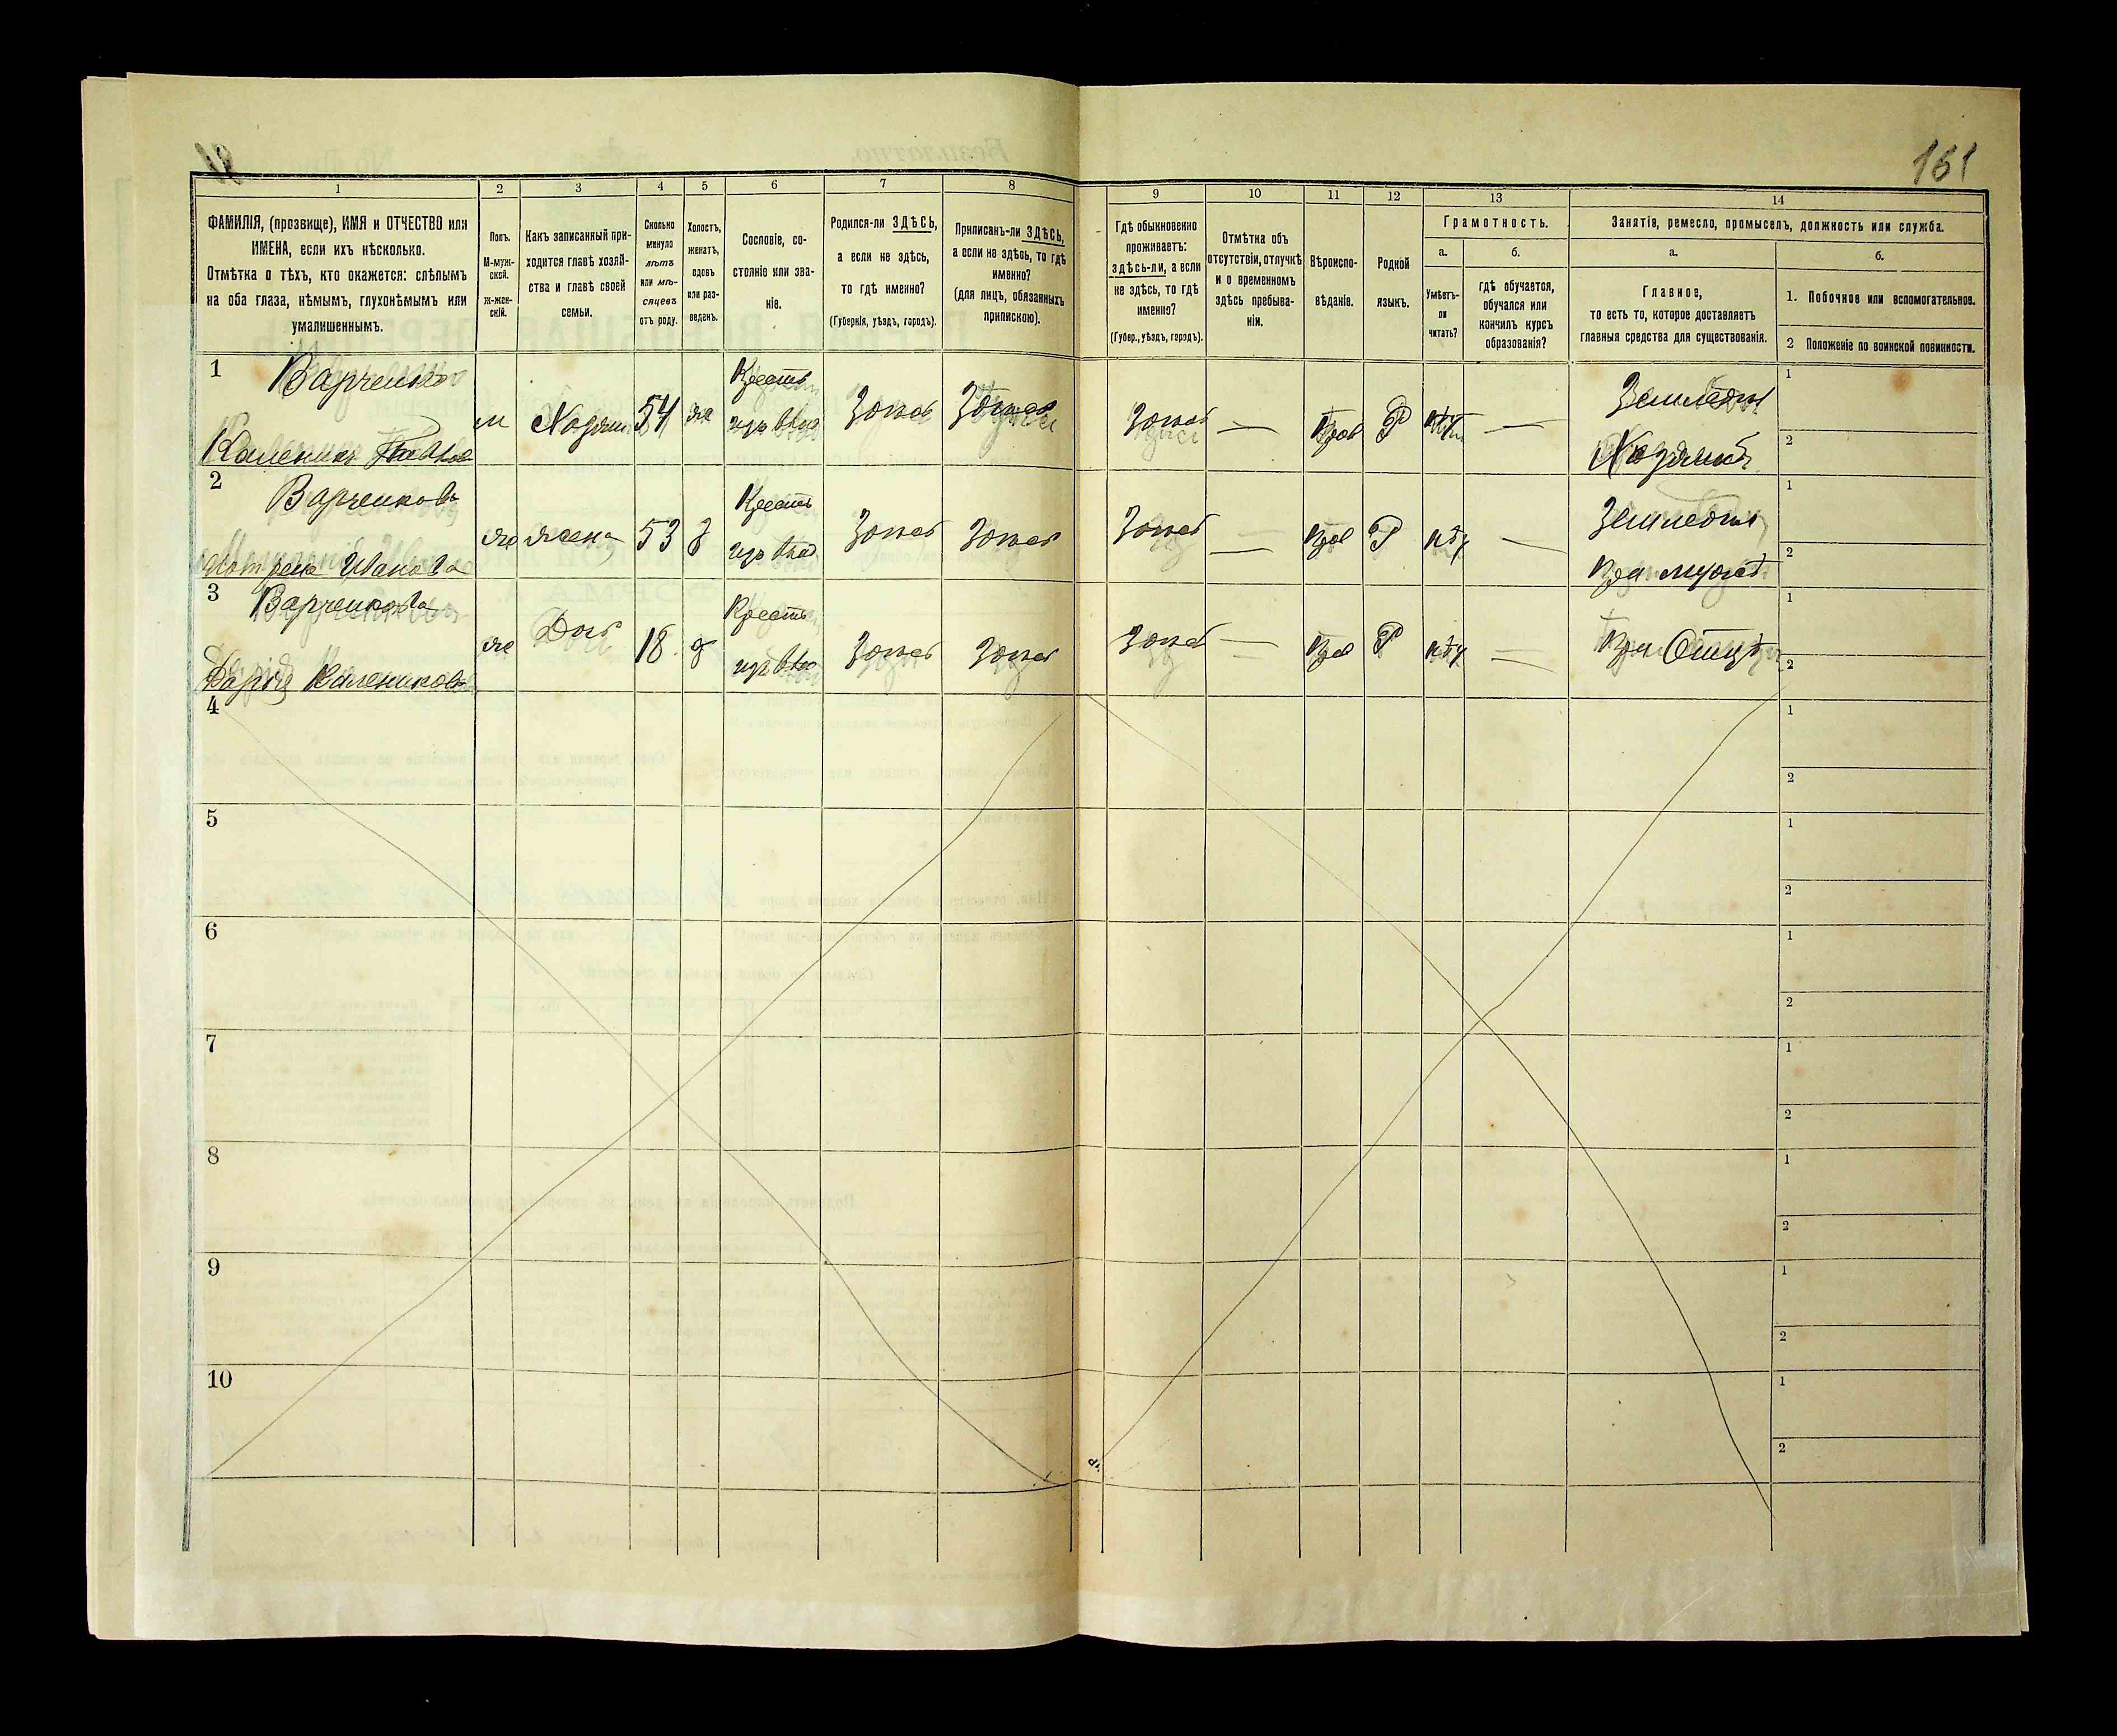 161
1 2 3 4 5 6 7 8 9 10 11 12 13 14
ФАМИЛІЯ, (прозвище), ИМЯ и ОТЧЕСТВО или
ИМЕНА, если ихъ нѣсколько.
Отмѣтка о тѣхъ, кто окажется: слѣпымъ
на оба глаза, нѣмымъ, глухонѣмымъ или
умалишеннымъ.
Полъ.
М-муж-
ской.
ж-жен-
скій.
Какъ записанный при-
ходится главѣ хозяй-
ства и главѣ своей
семьи.
Сколько
минуло
лѣтъ
или мѣ-
сяцевъ
отъ роду.
Холостъ,
женатъ,
вдовъ
или раз-
веденъ.
Сословіе, со-
стояніе или зва-
ніе.
Родился-ли ЗДѢСЬ,
а если не здѣсь,
то гдѣ именно?
(Губернія, уѣздъ, городъ).
Приписанъ-ли ЗДѢСЬ,
а если не здѣсь, то гдѣ
именно?
(для лицъ, обязанныхъ
припискою).
Гдѣ обыкновенно
проживаетъ:
здѣсь-ли, а если
не здѣсь, то гдѣ
именно?
(Губер., уѣздъ, городъ).
Отмѣтка объ
отсутствіи, отлучкѣ
и о временномъ
здѣсь пребыва-
ніи.
Вѣроиспо-
вѣданіе.
Родной
языкъ.
Грамотность.
а.
Умѣетъ-
ли
читать?
б.
гдѣ обучается,
обучался или
кончилъ курсъ
образованія?
Занятіе, ремесло, промыселъ, должность или служба.
а.
Главное,
то есть то, которое доставляетъ
главныя средства для существованія.
б.
1. Побочное или вспомогательное.
2 Положеніе по воинской повинности.
1 Варченко
Каленикъ
м Хозяин 54 Крестъ
Здѣсь Здѣсь Здѣсь — Прав Р — Земледѣл
Хозяинъ
1
2
2 Варченкова
Ивано ва
же жена 53 Крестъ
Здѣсь Здѣсь Здѣсь — Р — Земледѣл
При мужѣ
1
2
3 Варченкова
Дарія Каленикова
же Дочь 18 Крестъ
Здѣсь Здѣсь Здѣсь — Р — При Отцѣ
1
2
4
1
2
5
1
2
6
1
2
7
1
2
8
1
2
9
1
2
10
1
2